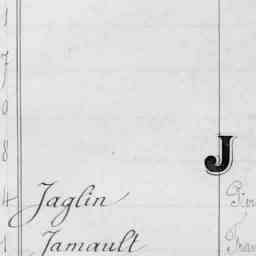 1
7
0
8
J
4 Jaglin
1 Jamault